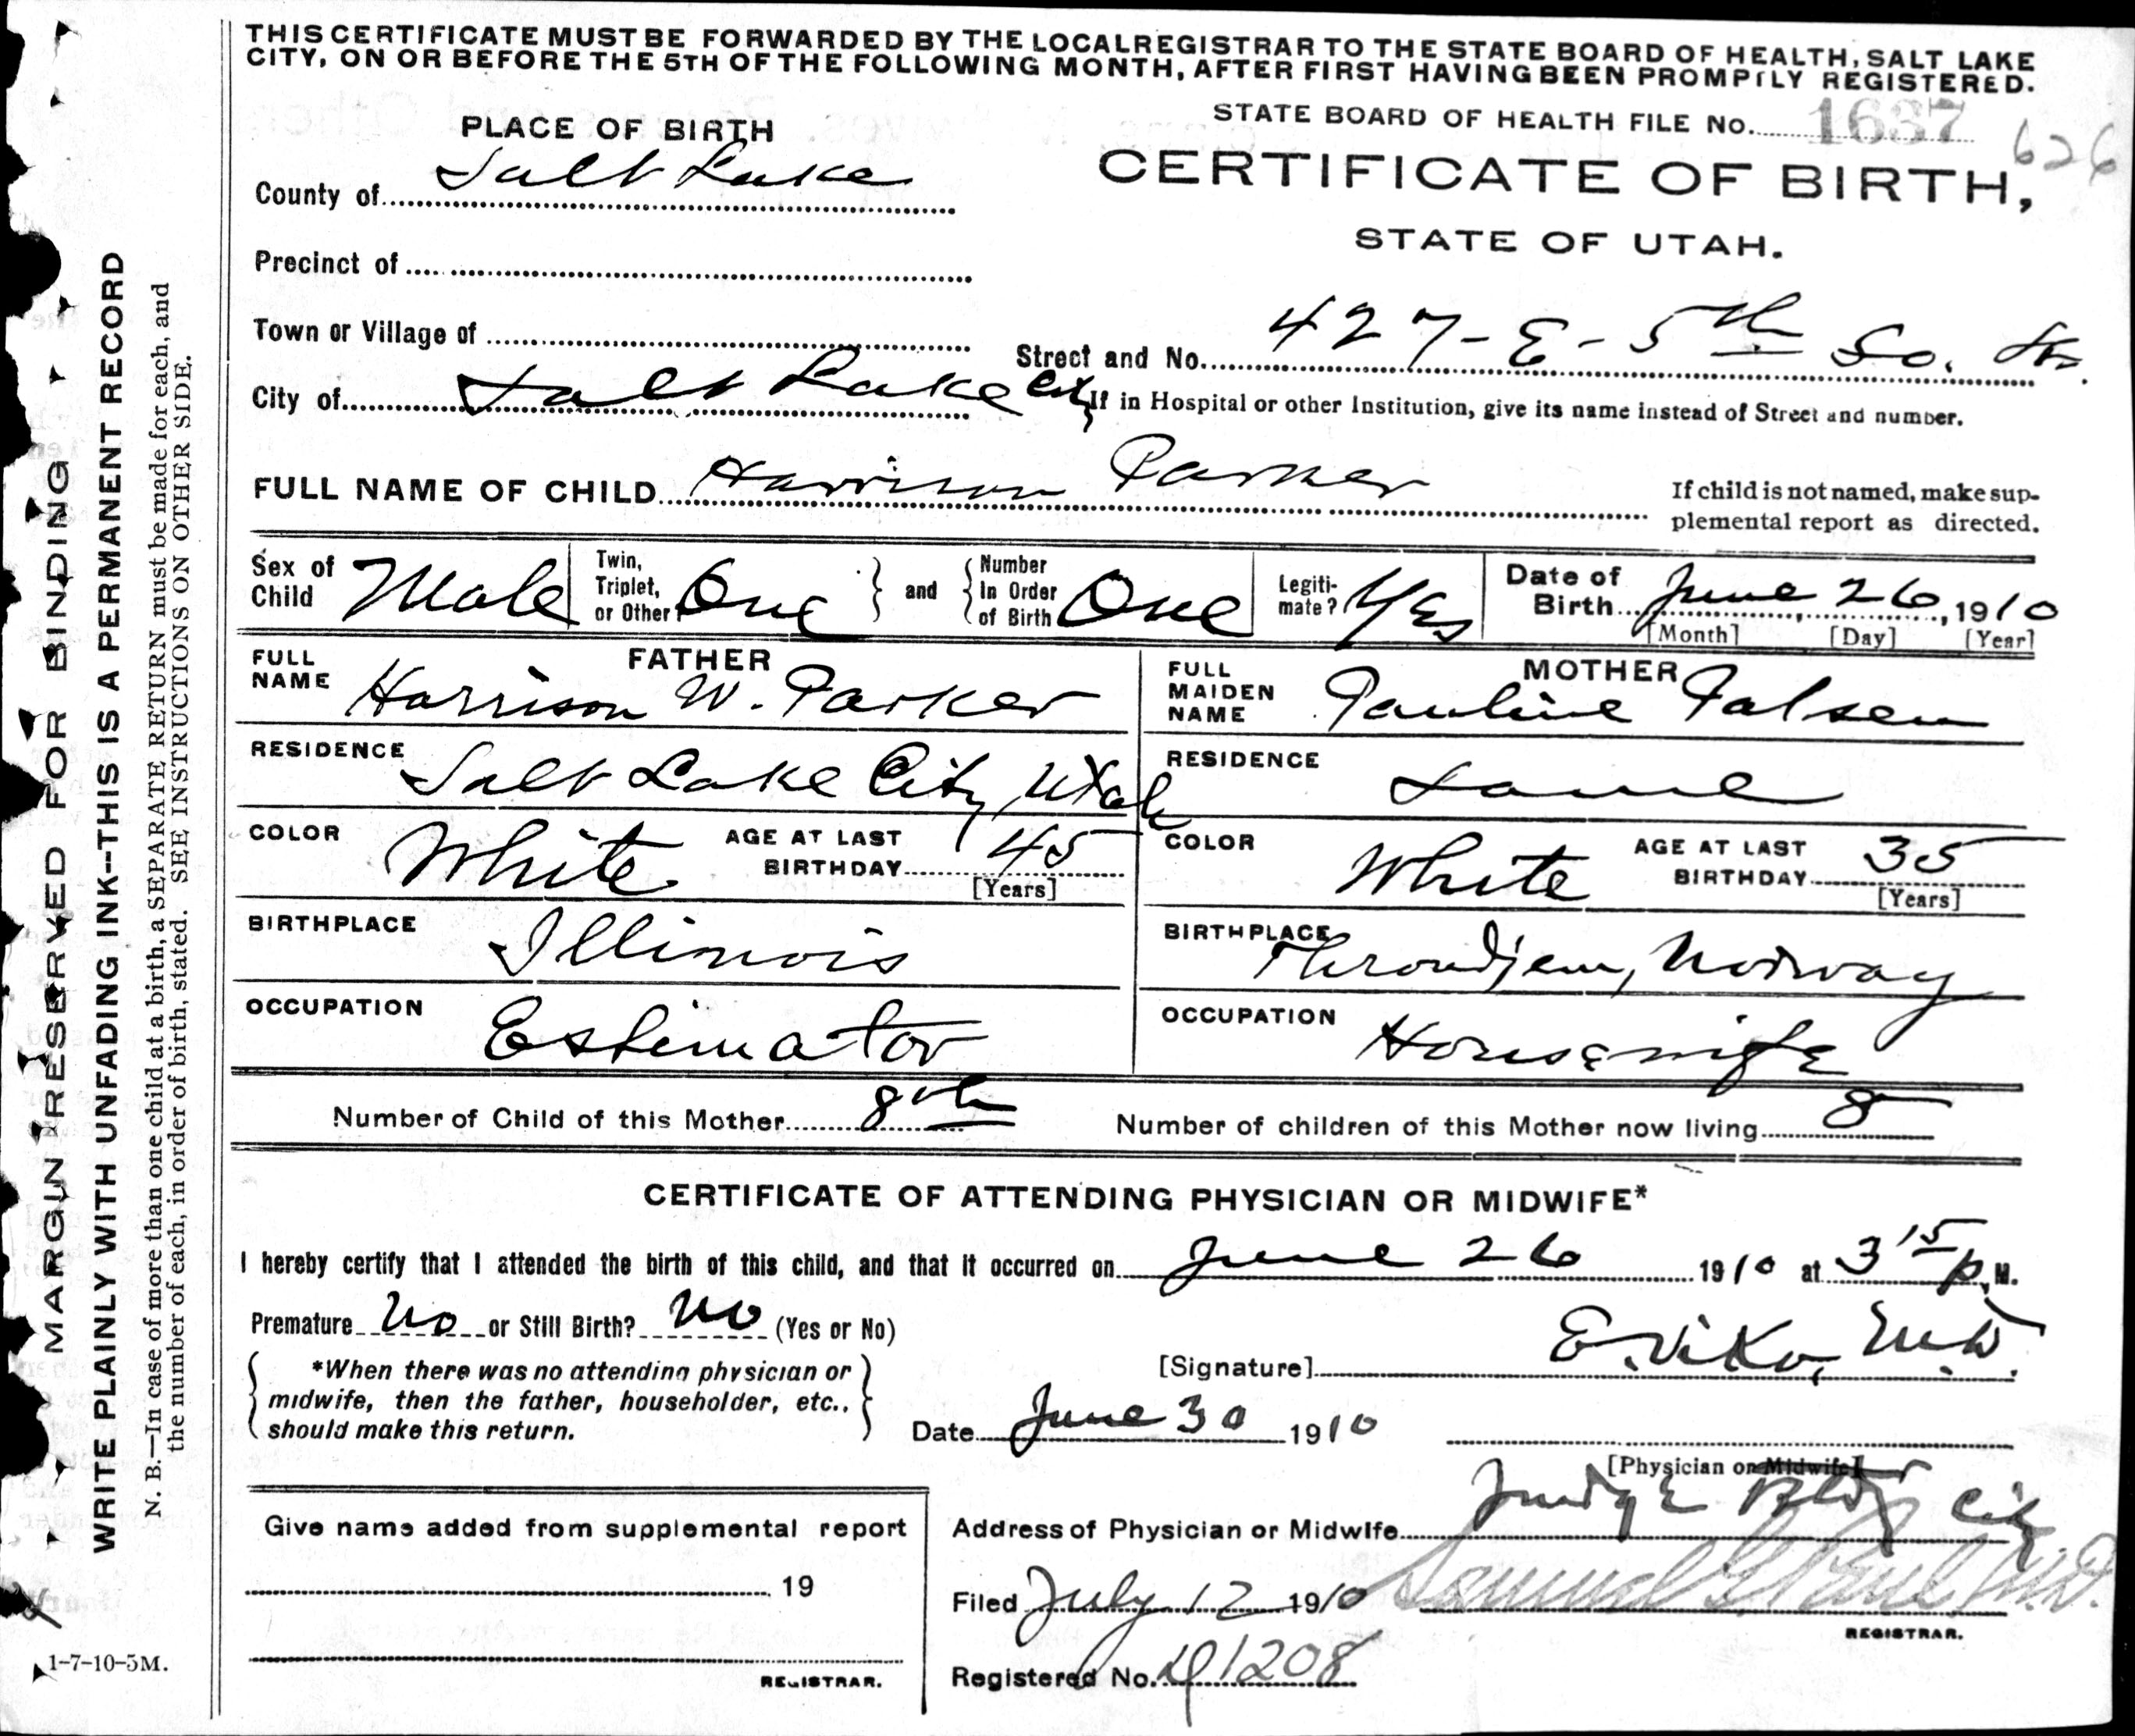 THIS CERTIFICATE MUST BE FORWARDED BY THE LOCAL REGISTRAR TO THE STATE BOARD OF HEALTH, SALT LAKE
CITY, ON OR BEFORE THE 5TH OF THE FOLLOWING MONTH, AFTER FIRST HAVING BEEN PROMPTLY REGISTERED.
STATE BOARD OF HEALTH FILE No. 1637 626
PLACE OF BIRTH
CERTIFICATE OF BIRTH,
STATE OF UTAH.
County of Salt Lake
Precinct of
Town or Village of
Street and No. 427-E-5th So. St.
City of Salt Lake City
If in Hospital or other Institution, give its name instead of Street and number.
FULL NAME OF CHILD Harrison Parker
If child is not named, make sup-
plemental report as directed.
Sex of Child Male
Twin, Triplet, or Other? One
and
Number In Order of Birth One
Legiti-mate? Yes
Date of Birth June 26, 1910
[Month] [Day] [Year]
FATHER
FULL NAME Harrison W. Parker
RESIDENCE Salt Lake City, Utah
COLOR White AGE AT LAST BIRTHDAY 45
[Years]
BIRTHPLACE Illinois
OCCUPATION Estimator
MOTHER
FULL MAIDEN NAME Pauline Falsen
RESIDENCE Same
COLOR White AGE AT LAST BIRTHDAY 35
[Years]
BIRTHPLACE Throndjem, Norway
OCCUPATION Housewife
Number of Child of this Mother 8th
Number of children of this Mother now living 8
CERTIFICATE OF ATTENDING PHYSICIAN OR MIDWIFE*
I hereby certify that I attended the birth of this child, and that it occurred on June 26 1910 at 3 15 P. M.
Premature No or Still Birth? No (Yes or No)
*When there was no attending physician or
midwife, then the father, householder, etc.,
should make this return.
[Signature] E. Viko, M.D.
Date June 30 1910
[Physician or Midwife]
Address of Physician or Midwife Judge Bldg City
Give name added from supplemental report
19
REGISTRAR.
Filed July 12 1910 Samuel G. Paul M.D.
REGISTRAR.
Registered No. 1208
MARGIN RESERVED FOR BINDING
WRITE PLAINLY WITH UNFADING INK--THIS IS A PERMANENT RECORD
N. B.—In case of more than one child at a birth, a SEPARATE RETURN must be made for each, and
the number of each, in order of birth, stated. SEE INSTRUCTIONS ON OTHER SIDE.
1-7-10-5M.